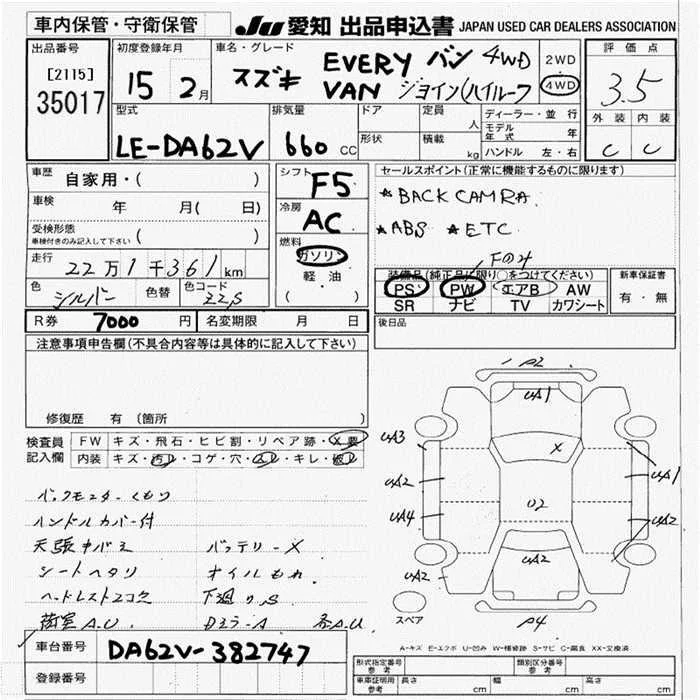 車内保管・守衛保管 JU 愛知 出品申込書 JAPAN USED CAR DEALERS ASSOCIATION
出品番号 [2115] 35017
初度登録年月 15 2月
車名・グレード スズキ EVERY バン 4WD
VAN ジョイン(ハイルーフ
2WD 4WD
評価点 3.5
外装 内装
C C
型式 LE-DA62V
排気量 660 CC
ドア 形状
定員 人 積載 kg
ディーラー・並行
モデル年式 年
ハンドル 左・右
車歴 自家用・( )
車検 年 月( 日)
受検形態 ( )
車検付きのみ記入して下さい
走行 22万1千361km
色 シルバー 色替 色コード Z2S
シフト F5
冷房 AC
燃料 ガソリン
軽・油
( )
セールスポイント(正常に機能するものに限ります)
★BACK CAMRA.
★ABS ★ETC
Fのみ
装備品(純正品に限り○をつけてください)
PS PW エアB AW
SR ナビ TV カワシート
新車保証書
有・無
R券 7000 円 名変期限 月 日
後日品
注意事項申告欄(不具合内容等は具体的に記入して下さい)
修復歴 有 〔箇所 〕
検査員記入欄 FW キズ・飛石・ヒビ割・リペア跡・X要
内装 キズ・汚れ・コゲ・穴・・キレ・
バックモニターくもり
ハンドルカバー付
天張 バッテリーX
シートヘタリ オイルもれ
下廻りS
荷室A.U
車台番号 DA62V-382747
登録番号
P2
UA1
UA3
X
UA1
UA2
U2
UA4
UA2
UA2
UA2
スペア
P4
A-キズ E-エクボ U-凹み W-補修跡 S-サビ C-腐食 XX-交換済
形式指定番号 参考 類別区分番号 参考
車庫証明用 参考 長さ cm 幅 cm 高さ cm